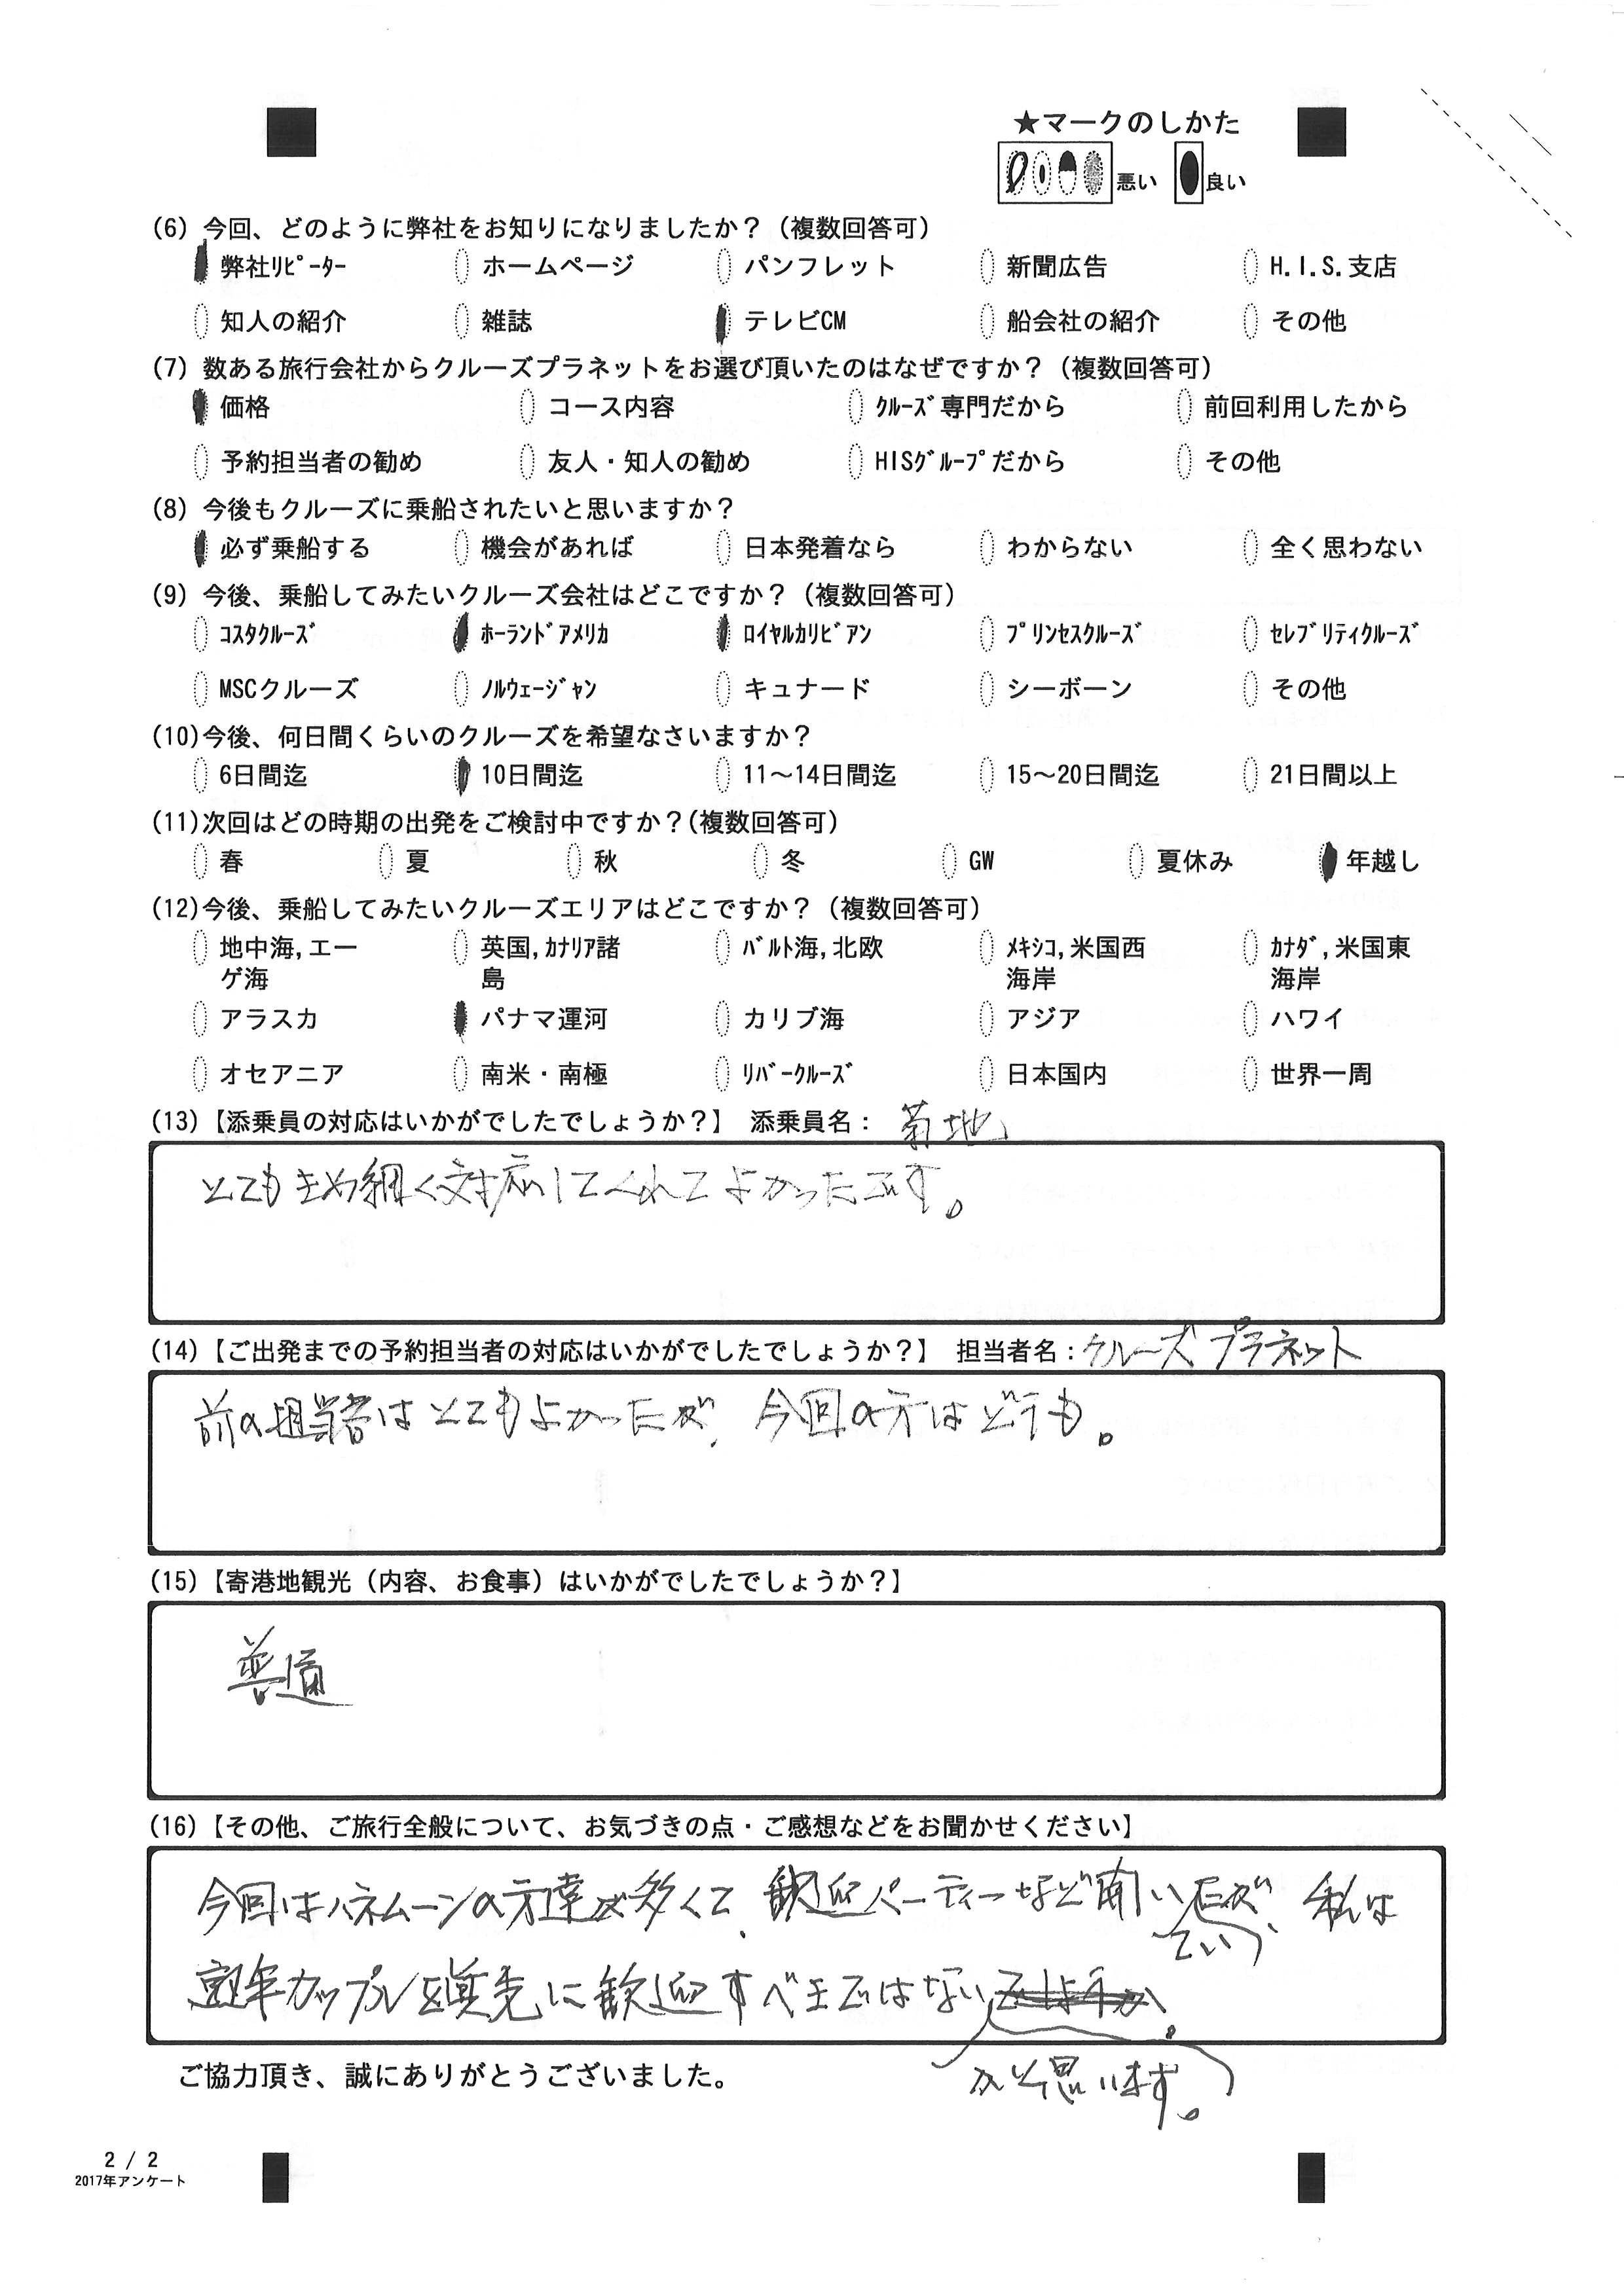 ★マークのしかた
悪い 良い
(6) 今回、どのように弊社をお知りになりましたか？（複数回答可）
弊社ﾘﾋﾟｰﾀｰ ホームページ パンフレット 新聞広告 H.I.S.支店
知人の紹介 雑誌 テレビCM 船会社の紹介 その他
(7) 数ある旅行会社からクルーズプラネットをお選び頂いたのはなぜですか？（複数回答可）
価格 コース内容 ｸﾙｰｽﾞ専門だから 前回利用したから
予約担当者の勧め 友人・知人の勧め HISｸﾞﾙｰﾌﾟだから その他
(8) 今後もクルーズに乗船されたいと思いますか？
必ず乗船する 機会があれば 日本発着なら わからない 全く思わない
(9) 今後、乗船してみたいクルーズ会社はどこですか？（複数回答可）
ｺｽﾀｸﾙｰｽﾞ ﾎｰﾗﾝﾄﾞｱﾒﾘｶ ﾛｲﾔﾙｶﾘﾋﾞｱﾝ ﾌﾟﾘﾝｾｽｸﾙｰｽﾞ ｾﾚﾌﾞﾘﾃｨｸﾙｰｽﾞ
MSCクルーズ ﾉﾙｳｪｰｼﾞｬﾝ キュナード シーボーン その他
(10)今後、何日間くらいのクルーズを希望なさいますか？
6日間迄 10日間迄 11～14日間迄 15～20日間迄 21日間以上
(11)次回はどの時期の出発をご検討中ですか？(複数回答可)
春 夏 秋 冬 GW 夏休み 年越し
(12)今後、乗船してみたいクルーズエリアはどこですか？（複数回答可）
地中海,エー 英国,ｶﾅﾘｱ諸 ﾊﾞﾙﾄ海,北欧 ﾒｷｼｺ,米国西 ｶﾅﾀﾞ,米国東
ゲ海 島 海岸 海岸
アラスカ パナマ運河 カリブ海 アジア ハワイ
オセアニア 南米・南極 ﾘﾊﾞｰｸﾙｰｽﾞ 日本国内 世界一周
(13)【添乗員の対応はいかがでしたでしょうか？】 添乗員名： 菊地
とてもきめ細く対応してくれてよかったです。
(14)【ご出発までの予約担当者の対応はいかがでしたでしょうか？】 担当者名：クルーズプラネット
前の担当者はとてもよかったが、今回の方はどうも。
(15)【寄港地観光（内容、お食事）はいかがでしたでしょうか？】
普通
(16)【その他、ご旅行全般について、お気づきの点・ご感想などをお聞かせください】
今回はハネムーンの方達が多くて、歓迎パーティーなど開いたが、私は
ていう
熟年カップルを真先に歓迎すべきではない
かと思います。
ご協力頂き、誠にありがとうございました。
2 / 2
2017年アンケート